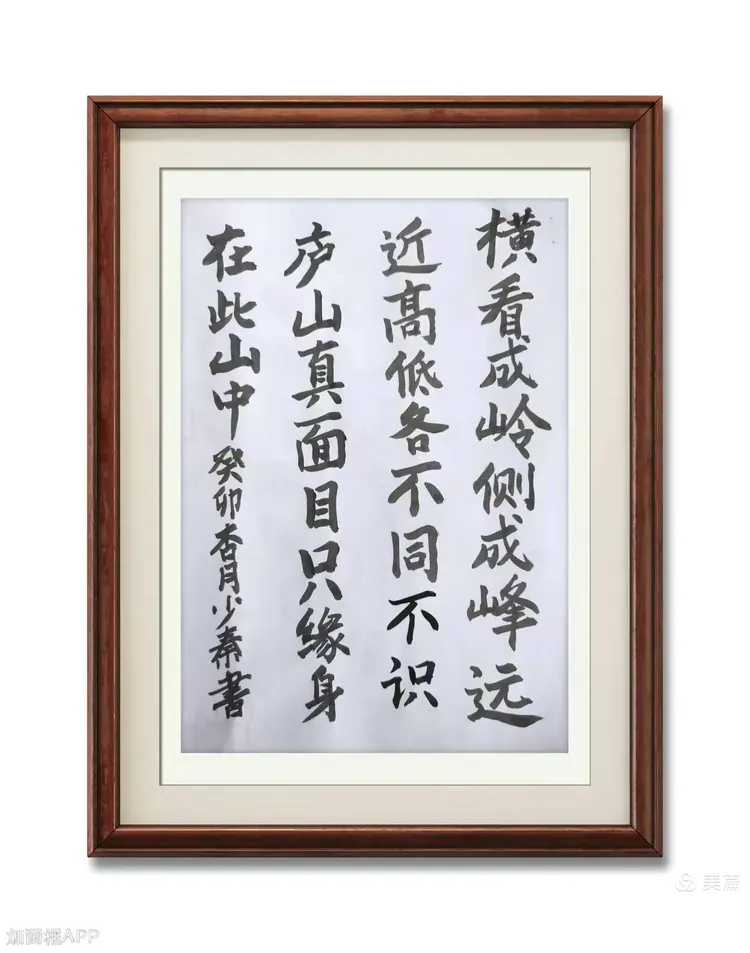 横看成岭侧成峰远
近高低各不同不识
庐山真面目只缘身
在此山中癸卯杏月少秦書
美篇
加画框APP